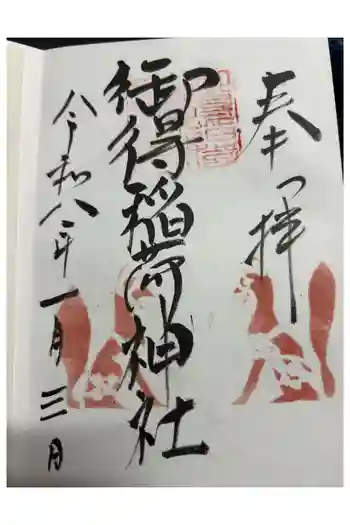 奉拝
御得稲荷神社
令和八年一月三日